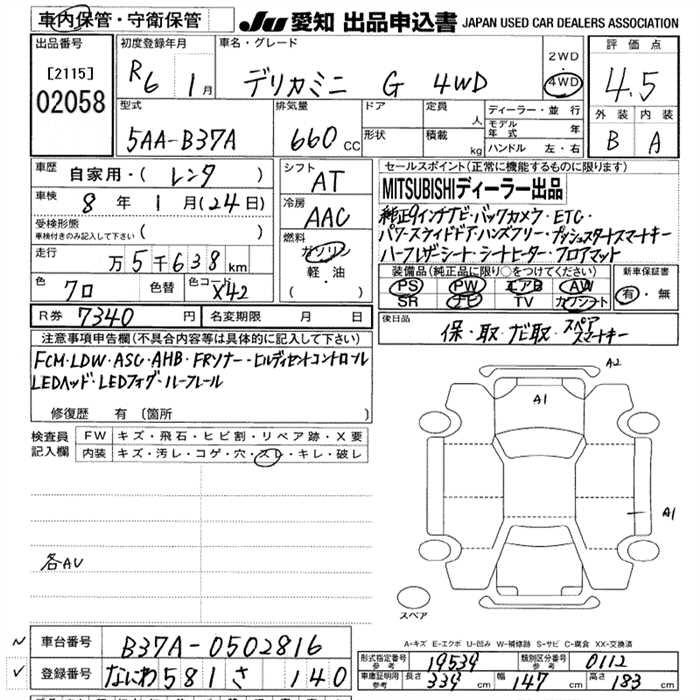 車内保管・守衛保管
JU 愛知 出品申込書 JAPAN USED CAR DEALERS ASSOCIATION
出品番号
[2115]
02058
初度登録年月
R6 1月
車名・グレード
デリカミニ G 4WD
2WD
4WD
評価点
4.5
外装 内装
B A
型式
5AA-B37A
排気量
660 CC
ドア
形状
定員 人
積載 kg
ディーラー・並行
モデル年式 年
ハンドル 左・右
車歴
自家用・( レンタ )
車検
8 年 1 月 (24日)
受検形態
車検付きのみ記入して下さい ( )
走行
万 5 千 638 km
色
クロ
色替
色コード
X42
シフト
AT
冷房
AAC
燃料
ガソリン
軽・油
( )
セールスポイント(正常に機能するものに限ります)
MITSUBISHIディーラー出品
純正9インチナビ・バックカメラ・ETC・
パワースライドドア・ハンズフリー・プッシュスタートスマートキー
ハーフレザーシート・シートヒーター・フロアマット
装備品(純正品に限り○をつけてください)
PS PW エアB AW
SR ナビ TV カワシート
新車保証書
有・無
R券 7340 円
名変期限 月 日
後日品
保・取・ナビ取・スペアスマートキー
注意事項申告欄(不具合内容等は具体的に記入して下さい)
FCM・LDW・ASC・AHB・FRソナー・ヒルディセントコントロール
LEDヘッド・LEDフォグ・ルーフレール
修復歴 有 (箇所 )
検査員記入欄
FW キズ・飛石・ヒビ割・リペア跡・X要
内装 キズ・汚レ・コゲ・穴・スレ・キレ・破レ
各AU
A2
A1
A1
スペア
A-キズ E-エクボ U-凹み W-補修跡 S-サビ C-腐食 XX-交換済
車台番号 B37A-0502816
登録番号 なにわ 581 さ 140
形式指定番号 参考 19534
類別区分番号 参考 0112
車庫証明用 参考 長さ 339 cm 幅 147 cm 高さ 183 cm